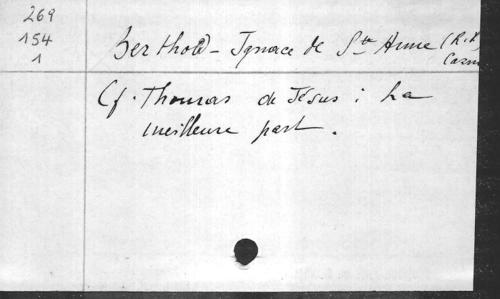 269
154
1
Berthold-Ignace de Ste Anne (R.P.
Carm
Cf. Thomas de Jésus : La
meilleure part.